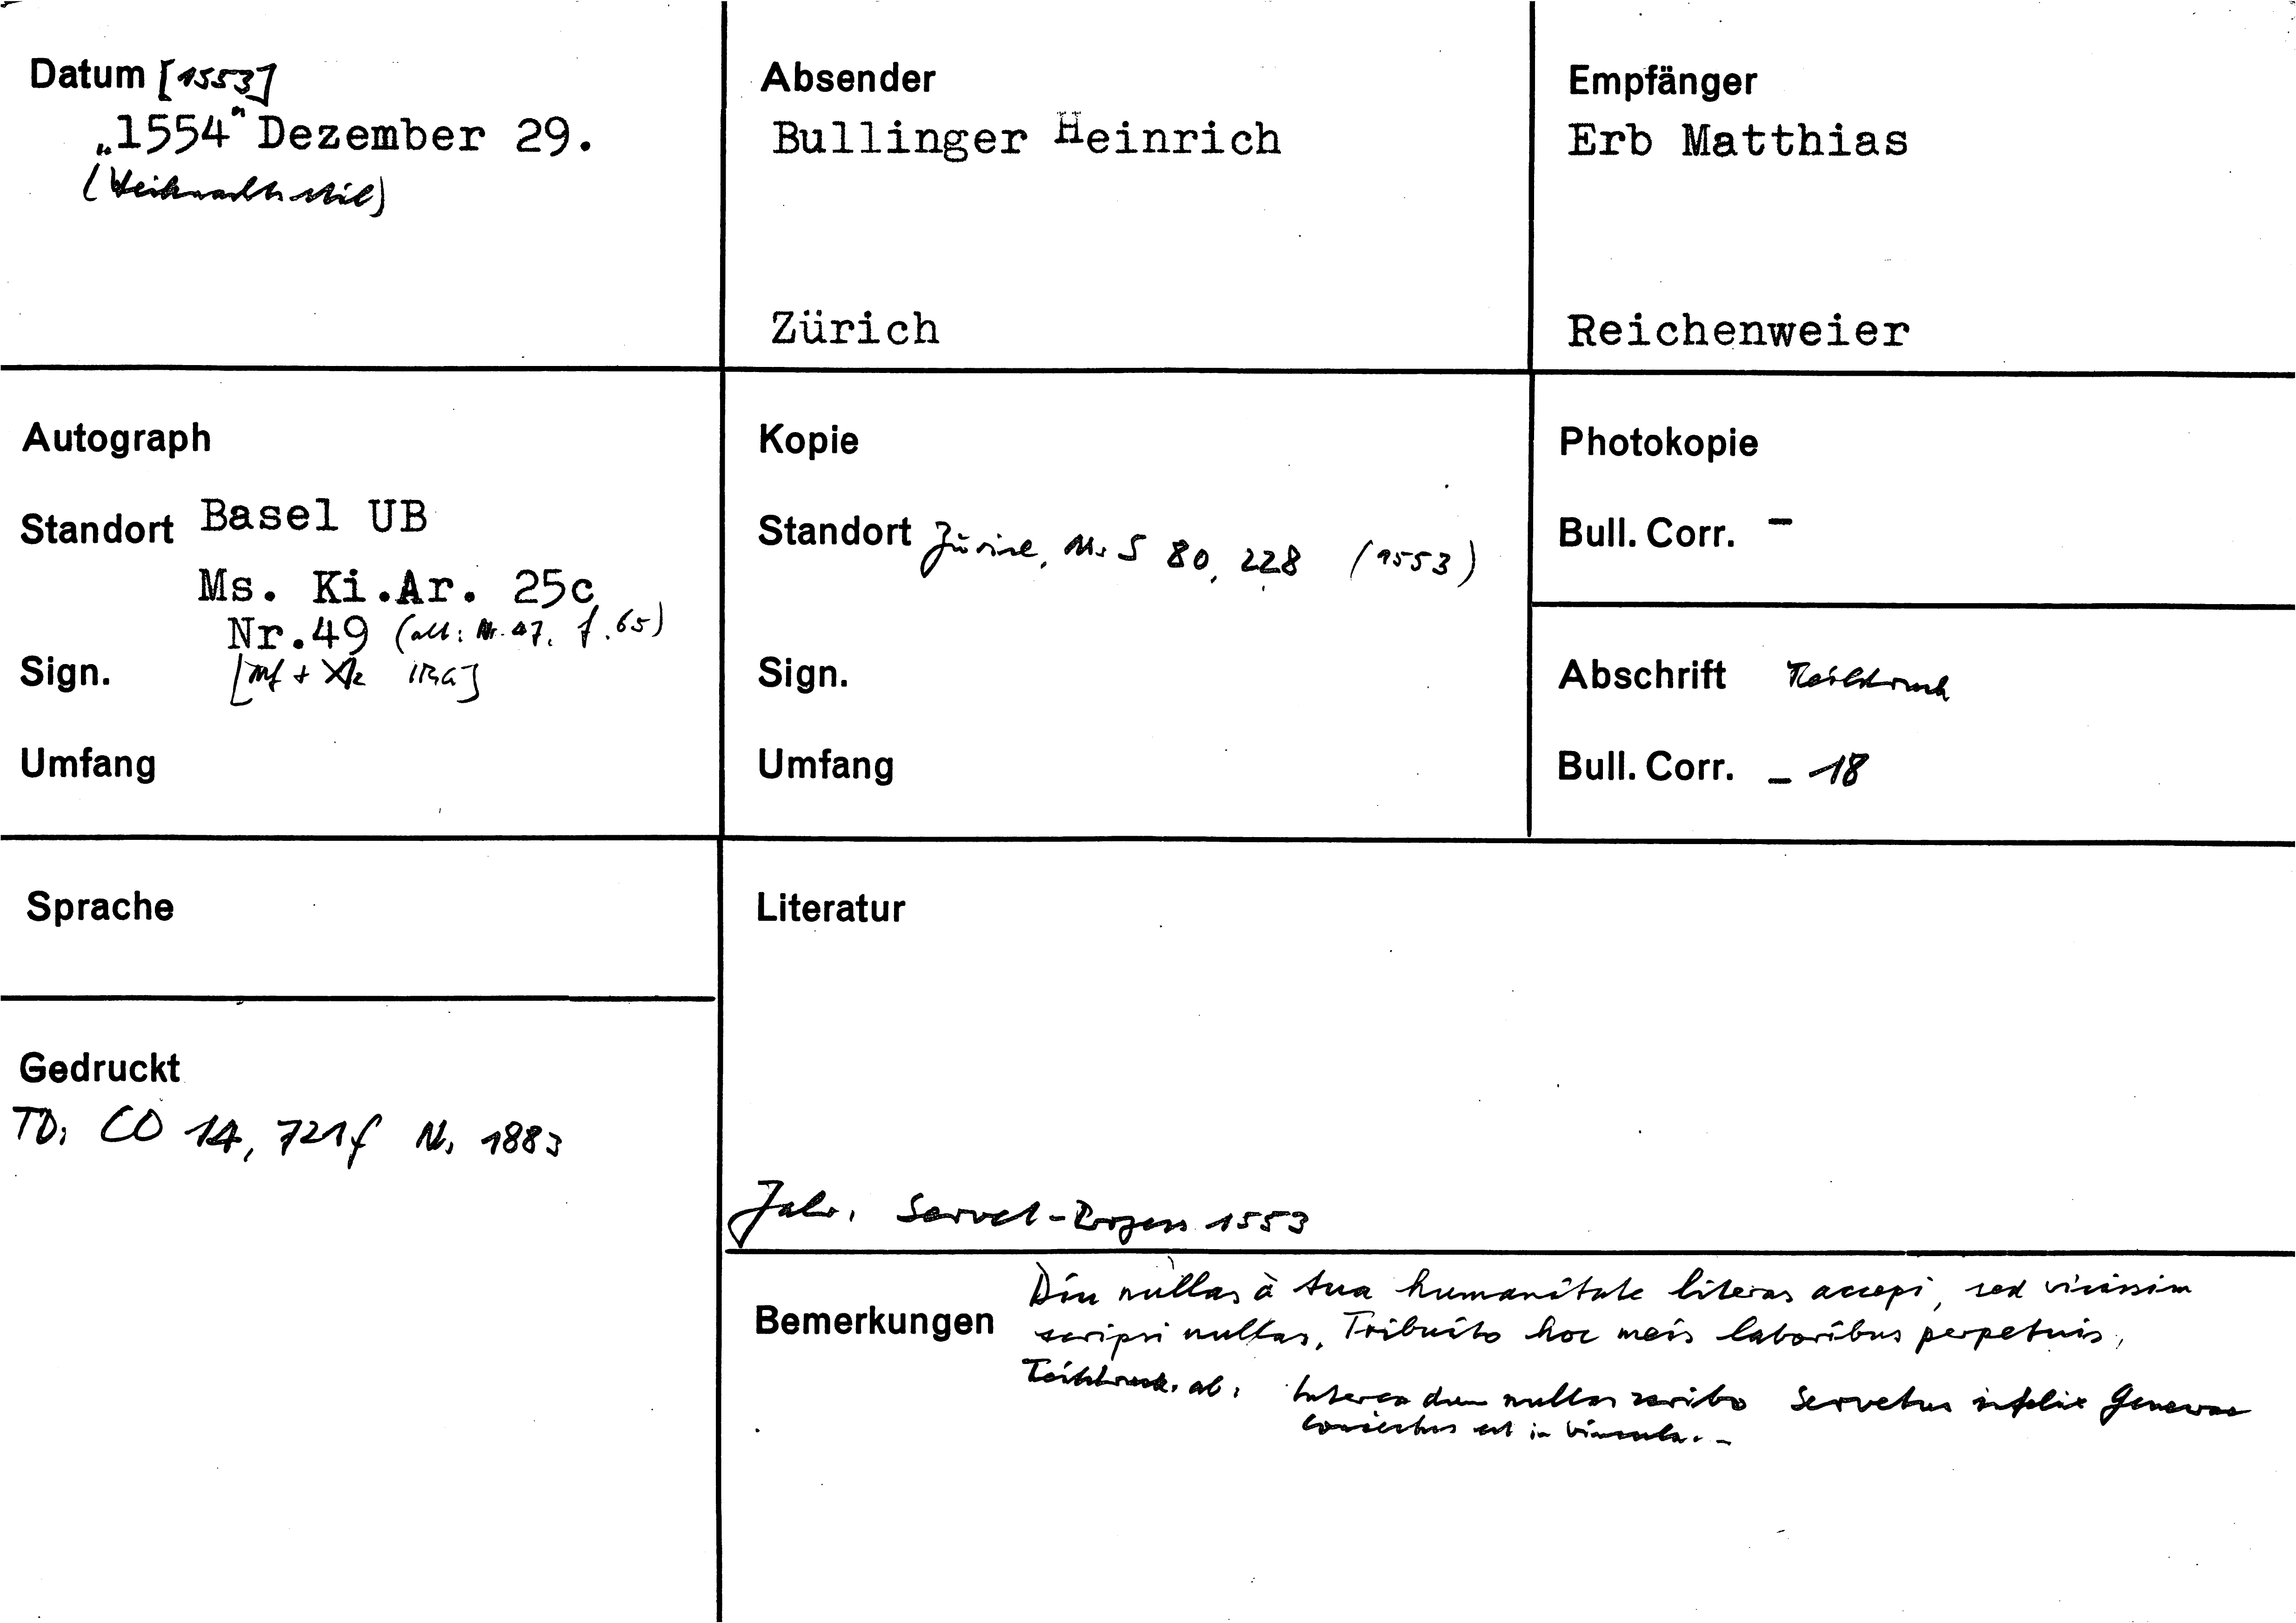 Datum [1553]
„1554" Dezember 29.
(Weihnachtsstil)
Absender
Bullinger Heinrich
Zürich
Empfänger
Erb Matthias
Reichenweier
Autograph
Standort Basel UB
Ms. Ki.Ar. 25c
Nr.49 (alt: Nr. 47, f. 65)
Sign. [Mf + XK IRG]
Umfang
Kopie
Standort Zürich, Ms S 80, 228 (1553)
Sign.
Umfang
Photokopie
Bull. Corr. –
Abschrift Teildruck
Bull. Corr. – 18
Sprache
Gedruckt
TD: CO 14, 721f Nr. 1883
Literatur
Jahr: Servet-Prozess 1553
Bemerkungen
Diu nullas à tua humanitate literas accepi, sed vicissim
scripsi nullas. Tribuito hoc meis laboribus perpetuis.
Teildruck ab: Interea dum nullas scribo Servetus infelix Genevae
coniectus est in vincula. -